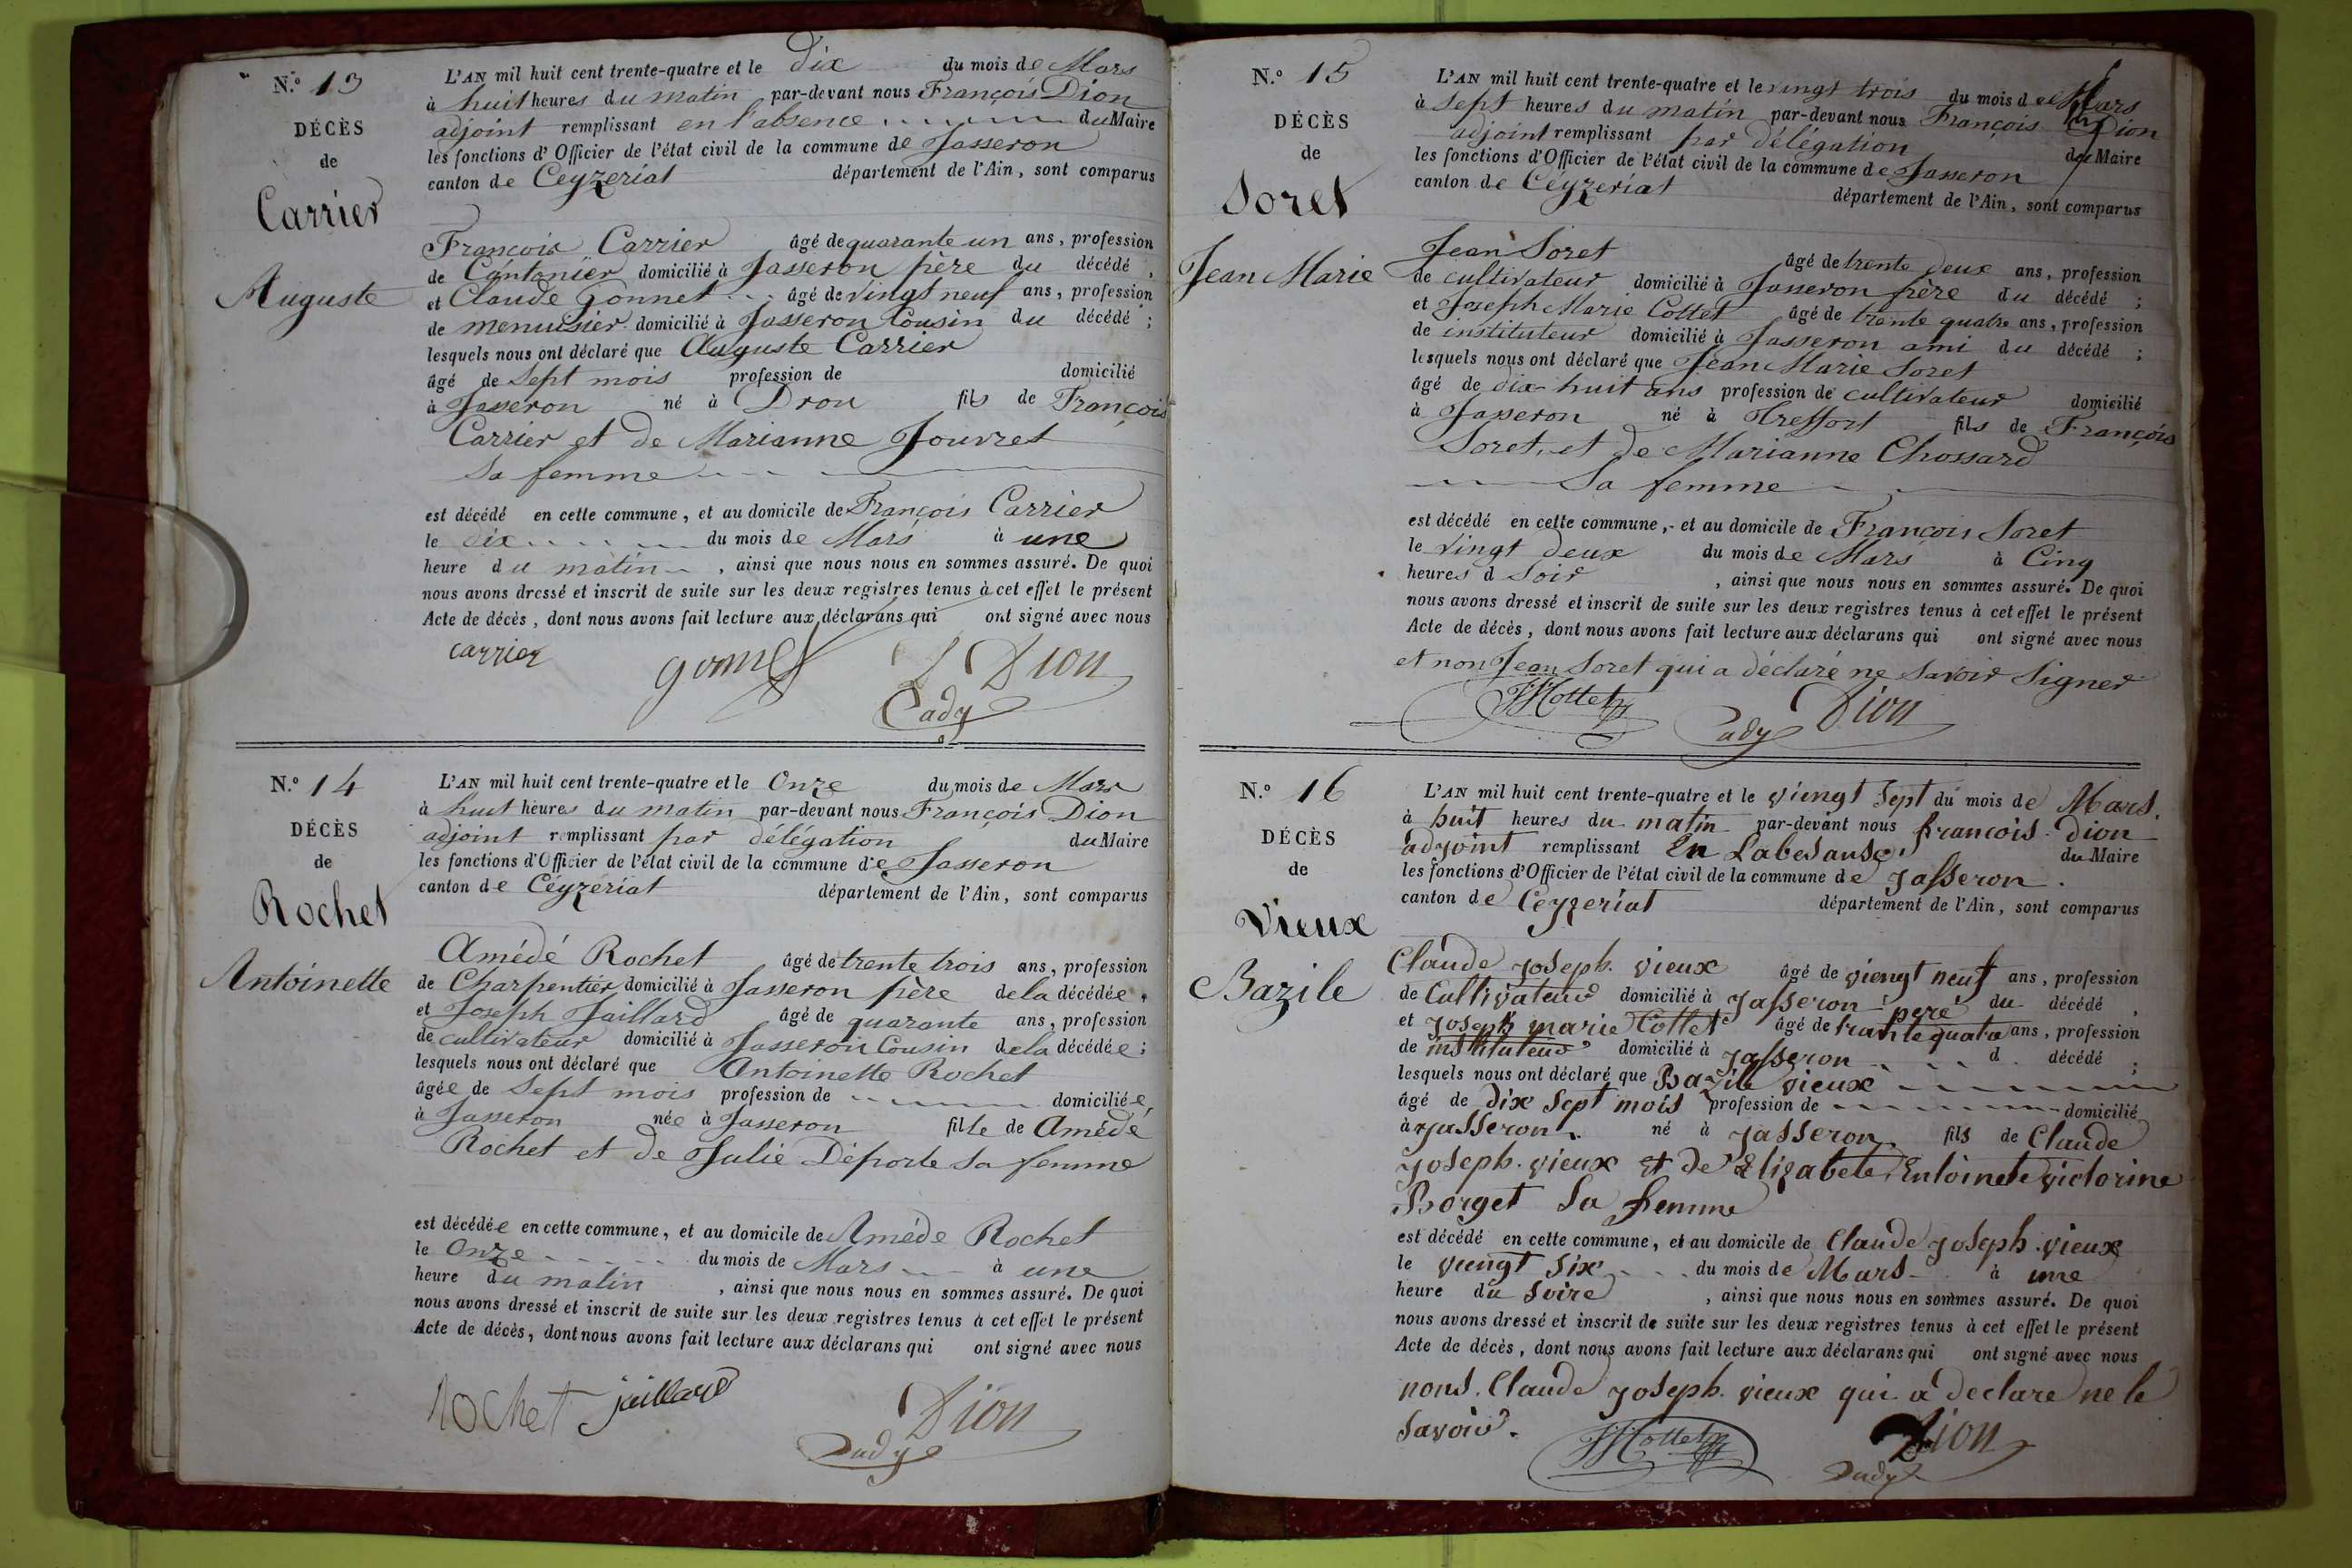 N.º 13
DÉCÈS
de
Carrier
Auguste
L'AN mil huit cent trente-quatre et le dix du mois de Mars
à huit heures du matin par-devant nous François Dion
adjoint remplissant en l'absence du Maire
les fonctions d'Officier de l'état civil de la commune de Jasseron
canton de Ceyzeriat département de l'Ain, sont comparus
François Carrier âgé de quarante un ans, profession
de Cantonier domicilié à Jasseron père du décédé,
et Claude Gonnet âgé de vingt neuf ans, profession
de menuisier domicilié à Jasseron Cousin du décédé;
lesquels nous ont déclaré que Auguste Carrier
âgé de sept mois profession de domicilié
à Jasseron né à Drou fils de François
Carrier et de Marianne Jouvret
sa femme
est décédé en cette commune, et au domicile de François Carrier
le dix du mois de Mars à une
heure du matin, ainsi que nous nous en sommes assuré. De quoi
nous avons dressé et inscrit de suite sur les deux registres tenus à cet effet le présent
Acte de décès, dont nous avons fait lecture aux déclarans qui ont signé avec nous
carrier gonnet Dion
adj
N.º 14
DÉCÈS
de
Rochet
Antoinette
L'AN mil huit cent trente-quatre et le Onze du mois de Mars
à huit heures du matin par-devant nous François Dion
adjoint remplissant par délégation du Maire
les fonctions d'Officier de l'état civil de la commune de Jasseron
canton de Céyzériat département de l'Ain, sont comparus
Amédé Rochet âgé de trente trois ans, profession
de Charpentier domicilié à Jasseron père de la décédée,
et Joseph Jaillard âgé de quarante ans, profession
de cultivateur domicilié à Jasseron Cousin de la décédée;
lesquels nous ont déclaré que Antoinette Rochet
âgée de sept mois profession de domiciliée
à Jasseron née à Jasseron fille de Amédé
Rochet et de Julie Déporte sa femme
est décédée en cette commune, et au domicile de Amédé Rochet
le Onze du mois de Mars à une
heure du matin, ainsi que nous nous en sommes assuré. De quoi
nous avons dressé et inscrit de suite sur les deux registres tenus à cet effet le présent
Acte de décès, dont nous avons fait lecture aux déclarans qui ont signé avec nous
rochet jaillard Dion
adj
N.º 15
DÉCÈS
de
Soret
Jean Marie
L'AN mil huit cent trente-quatre et le vingt trois du mois de Mars
à sept heures du matin par-devant nous François Dion
adjoint remplissant par délégation du Maire
les fonctions d'Officier de l'état civil de la commune de Jasseron
canton de Céyzeriat département de l'Ain, sont comparus
Jean Soret âgé de trente deux ans, profession
de cultivateur domicilié à Jasseron frère du décédé;
et Joseph Marie Cottet âgé de trente quatre ans, profession
de instituteur domicilié à Jasseron ami du décédé;
lesquels nous ont déclaré que Jean Marie Soret
âgé de dix huit ans profession de cultivateur domicilié
à Jasseron né à Treffort fils de François
Soret, et de Marianne Chossard
Sa femme
est décédé en cette commune, et au domicile de François Soret
le vingt deux du mois de Mars à Cinq
heures d Soir, ainsi que nous nous en sommes assuré. De quoi
nous avons dressé et inscrit de suite sur les deux registres tenus à cet effet le présent
Acte de décès, dont nous avons fait lecture aux déclarans qui ont signé avec nous
et non Jean Soret qui a déclaré ne savoir signer
JMCottet Dion
adj
N.º 16
DÉCÈS
de
Vieux
Bazile
L'AN mil huit cent trente-quatre et le viengt sept du mois de Mars.
à huit heures du matin par-devant nous francois dion
adjoint remplissant En Labesanse du Maire
les fonctions d'Officier de l'état civil de la commune de Jasseron.
canton de Ceyzeriat département de l'Ain, sont comparus
Claude joseph. vieux âgé de viengt neuf ans, profession
de Cultivateur domicilié à Jasseron peré du décédé,
et joseph marie Cottet âgé de trante quatre ans, profession
de instituteur domicilié à Jasseron d décédé;
lesquels nous ont déclaré que Bazile vieux
âgé de dix sept mois profession de domicilié
à Jasseron né à Jasseron fils de Claude
joseph. vieux et de Elizabete Entoinete victorine
Borget sa femme
est décédé en cette commune, et au domicile de Claude joseph. vieux
le viengt six du mois de Mars à une
heure du soire, ainsi que nous nous en sommes assuré. De quoi
nous avons dressé et inscrit de suite sur les deux registres tenus à cet effet le présent
Acte de décès, dont nous avons fait lecture aux déclarans qui ont signé avec nous
nons. Claude joseph. vieux qui a declare ne le
savoir.
JMCottet Dion
adj